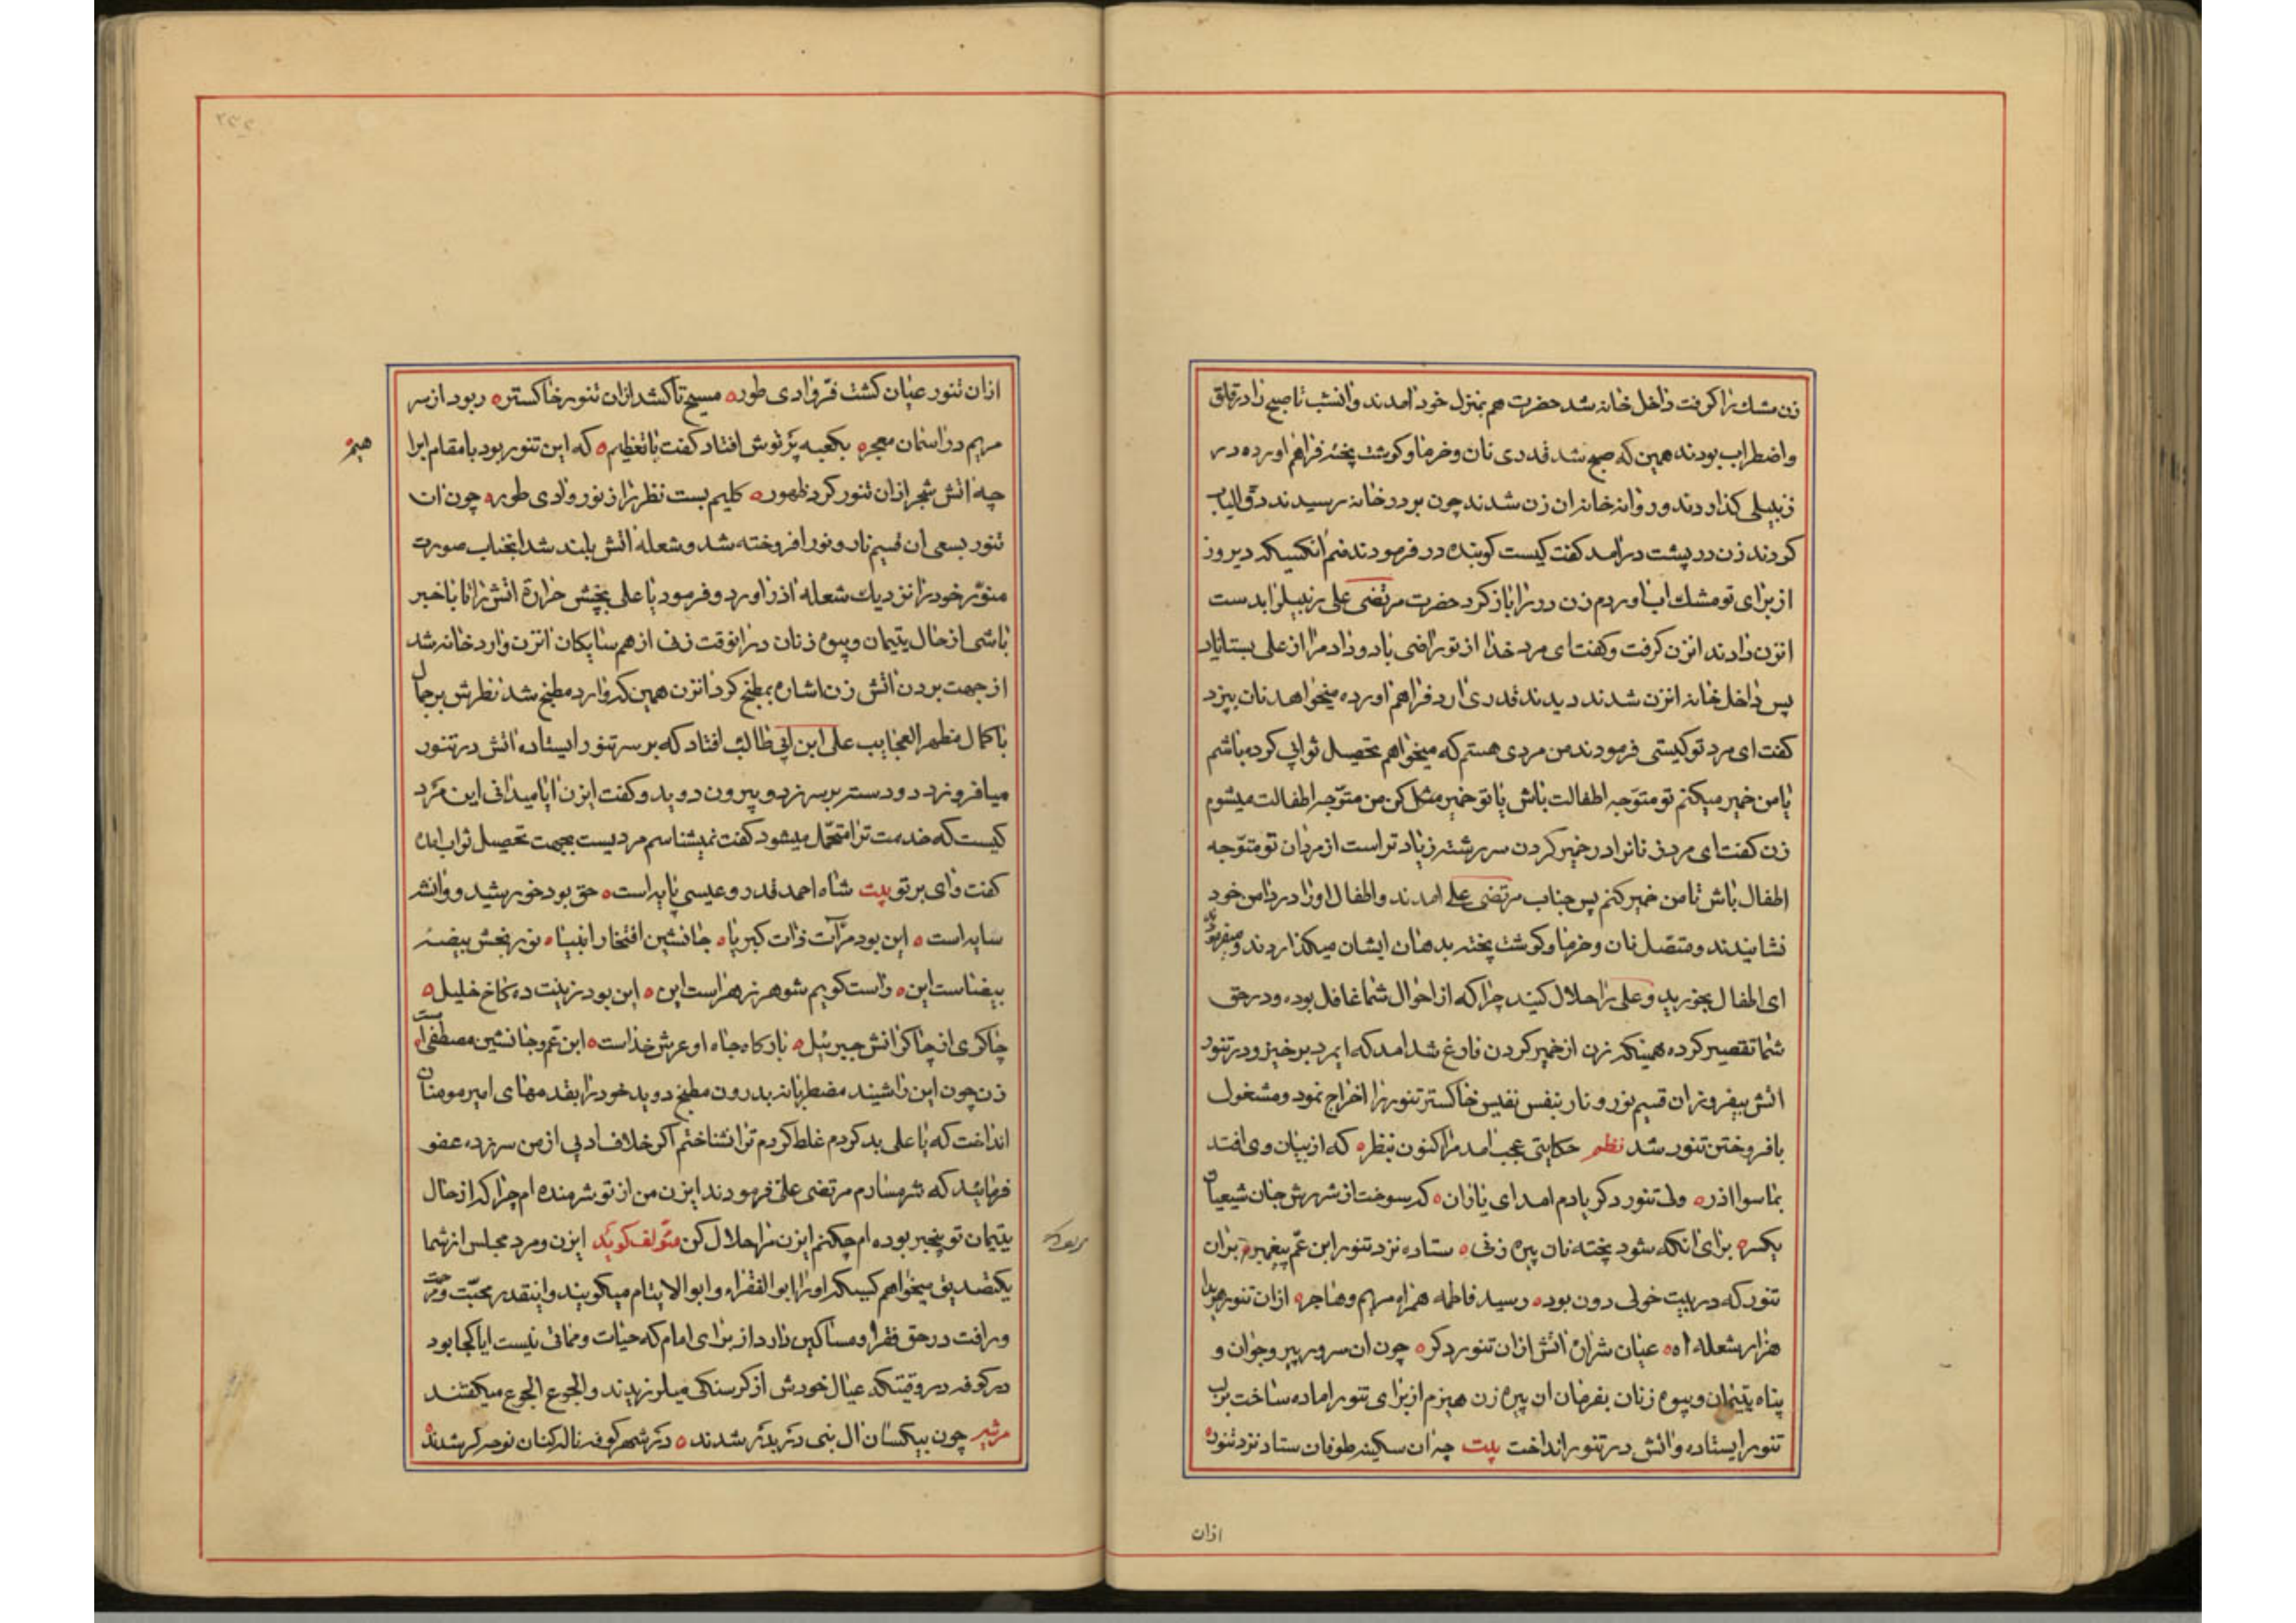 زن مشك را كرفت داخل خانه شد حضرت هم بمنزل خود امدند و انشب تا صبح را در قلق
و اضطراب بودند همين كه صبح شد قدرى نان و خرما و كوشت پخته فراهم اورده در
زنبيلى كذاردند و روانه خانه ان زن شدند چون بر در خانه رسيدند دق الباب
كردند زن در پشت در امد كفت كيست كوبنده در فرمودند منم انكسيكه ديروز
از براى تو مشك اب اوردم زن در را باز كرد حضرت مرتضى على زنبيلرا بدست
انزن دادند انزن كرفت و كفت اى مرد خدا از تو راضى باد و داد مرا از على بستاناد
پس داخل خانه انزن شدند ديدند قدرى ارد فراهم اورده ميخواهد نان بپزد
كفت اى مرد تو كيستى فرمودند من مردى هستم كه ميخواهم تحصيل ثوابى كرده باشم
يا من خمير ميكنم تو متوّجه اطفالت باش يا تو خمير مشكل كن من متوّجه اطفالت ميشوم
زن كفت اى مرد زنانرا در خمير كردن سررشته زيادتر است از مردان تو متوّجه
اطفال باش تا من خمير كنم پس جناب مرتضى على امدند و اطفال اورا در دامن خود
نشانيدند و متصّل نان و خرما و كوشت پخته بدهان ايشان ميكذاردند و ميفرمودند
اى اطفال بخوريد و على را حلال كنيد چرا كه از احوال شما غافل بوده و در حق
شما تقصير كرده همينكه زن از خمير كردن فارغ شد امد كه ايمرد برخيز و در تنور
اتش بيفروز ان قسيم نور و نار بنفس نفيس خاكستر تنور را اخراج نمود و مشغول
بافروختن تنور شد نظم حكايتى عجب امد مرا كنون بنظره كه از بيان وى افتد
بما سوا اذره ولى تنور دكر يادم امد اى ياران ه كه سوخت از شررش جان شيعيان
يكسره براى انكه شود پخته نان پيره زنى ه ستاده نزد تنور ابن عّم پيغمبره بران
تنور كه در بيت خولى دون بوده رسيد فاطمه همراه مريم و هاجره ازان تنور هويدا
هزار شعله اه ه عيان شراره اتش ازان تنور دكره چون ان سرور پير و جوان و
پناه يتيمان و بيوه زنان بفرمان ان پيره زن هيزم از براى تنور اماده ساخت بر لب
تنور ايستاده و اتش در تنور انداخت بيت چه ان سكينه طوفان ستاد نزد تنوره
ازان
ازان تنور عيان كشت فرّ وادى طوره مسيح تا كشد ازان تنور خاكستره ربود از سر
مريم در اسمان معجره بكعبه پرتوش افتاد كفت با تعظيم ه كه اين تنور بود با مقام ابرا
هيم ه
چه اتش شجر ازان تنور كرد ظهوره كليم بست نظر را ز نور وادى طوره چون ان
تنور بسعى ان قسيم نار و نور افروخته شد و شعله اتش بلند شد انجناب صورت
منوّر خود را نزديك شعله اذر اورد و فرمود يا على بچش حرارة اتش را تا باخبر
باشى از حال يتيمان و بيوه زنان در انوقت زنى از همسايكان انزن وارد خانه شد
از جهت بردن اتش زن اشاره بمطبخ كرد انزن همين كه وارد مطبخ شد نظرش بر جمال
با كمال مظهر العجايب على ابن ابى طالب افتاد كه بر سر تنور ايستاده اتش در تنور
ميافروزد دو دستر بر سر زد و بيرون دويد و كفت ايزن ايا ميدانى اين مرد
كيست كه خدمت ترا متحّمل ميشود كفت نميشناسم مرديست بجهت تحصيل ثواب امده
كفت واى بر تو بيت شاه احمد قدر و عيسى پايه است ه حق بود خورشيد و وانش
سايه است ه اين بود مرآت ذات كبرياه جانشين افتخار انبياه نور بخش بيضه
بيضاست اين ه راست كويم شوهر زهراست اين ه اين بود زينت ده كاخ خليل ه
چاكرى از چاكرانش جبرئيل ه باركاه جاه او عرش خداست ه ابن عّم و جانشين مصطفى است
زن چون اين را شنيد مضطربانه بدرون مطبخ دويد خود را بقدمهاى امير مومنان
انداخت كه يا على بد كردم غلط كردم ترا نشناختم اكر خلاف ادبى از من سر زده عفو
فرمائيد كه شرمسارم مرتضى على فرمودند ايزن من از تو شرمنده ام چرا كه از حال
يتيمان تو بيخبر بوده ام چكنم ايزن مرا حلال كن مؤلف كويد ايزن و مرد مجلس از شما
يكتصديق ميخواهم كسيكه اورا ابو الفقراء و ابو الايتام ميكويند و اينقدر محبّت و مرحمت
و رافت در حق فقرا و مساكين دارد از براى امام كه حيات و مماتى نيست ايا كجا بود
در كوفه در وقتيكه عيال خودش از كرسنكى ميلرزيدند و الجوع الجوع ميكفتند
مرثيه چون بيكسان ال نبى در بدر شدند ه در شهر كوفه ناله كنان نوحه كر شدند ه